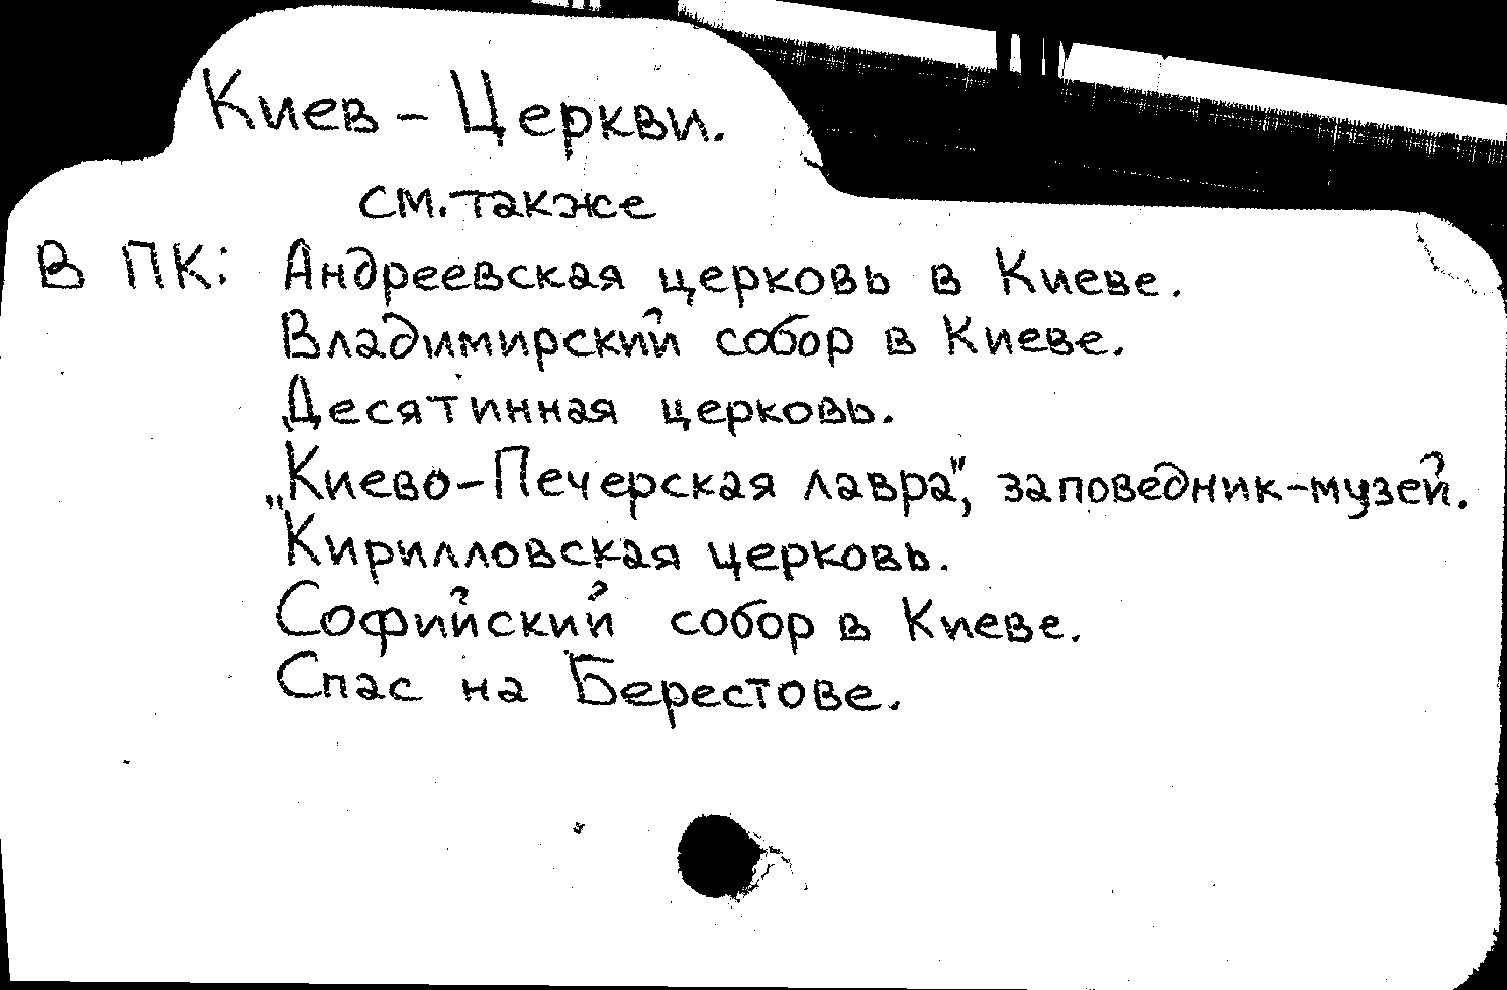 Киев – Церкви.
см. также
В ПК: Андреевская церковь в Киеве.
Владимирский собор в Киеве.
Десятинная церковь.
„Киево-Печерская лавра", заповедник-музей.
Кирилловская церковь.
Софийский собор в Киеве.
Спас на Берестове.